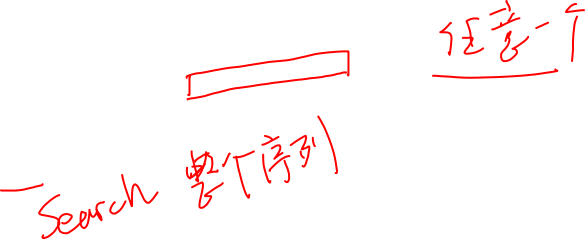 任意一个
Search 整个序列